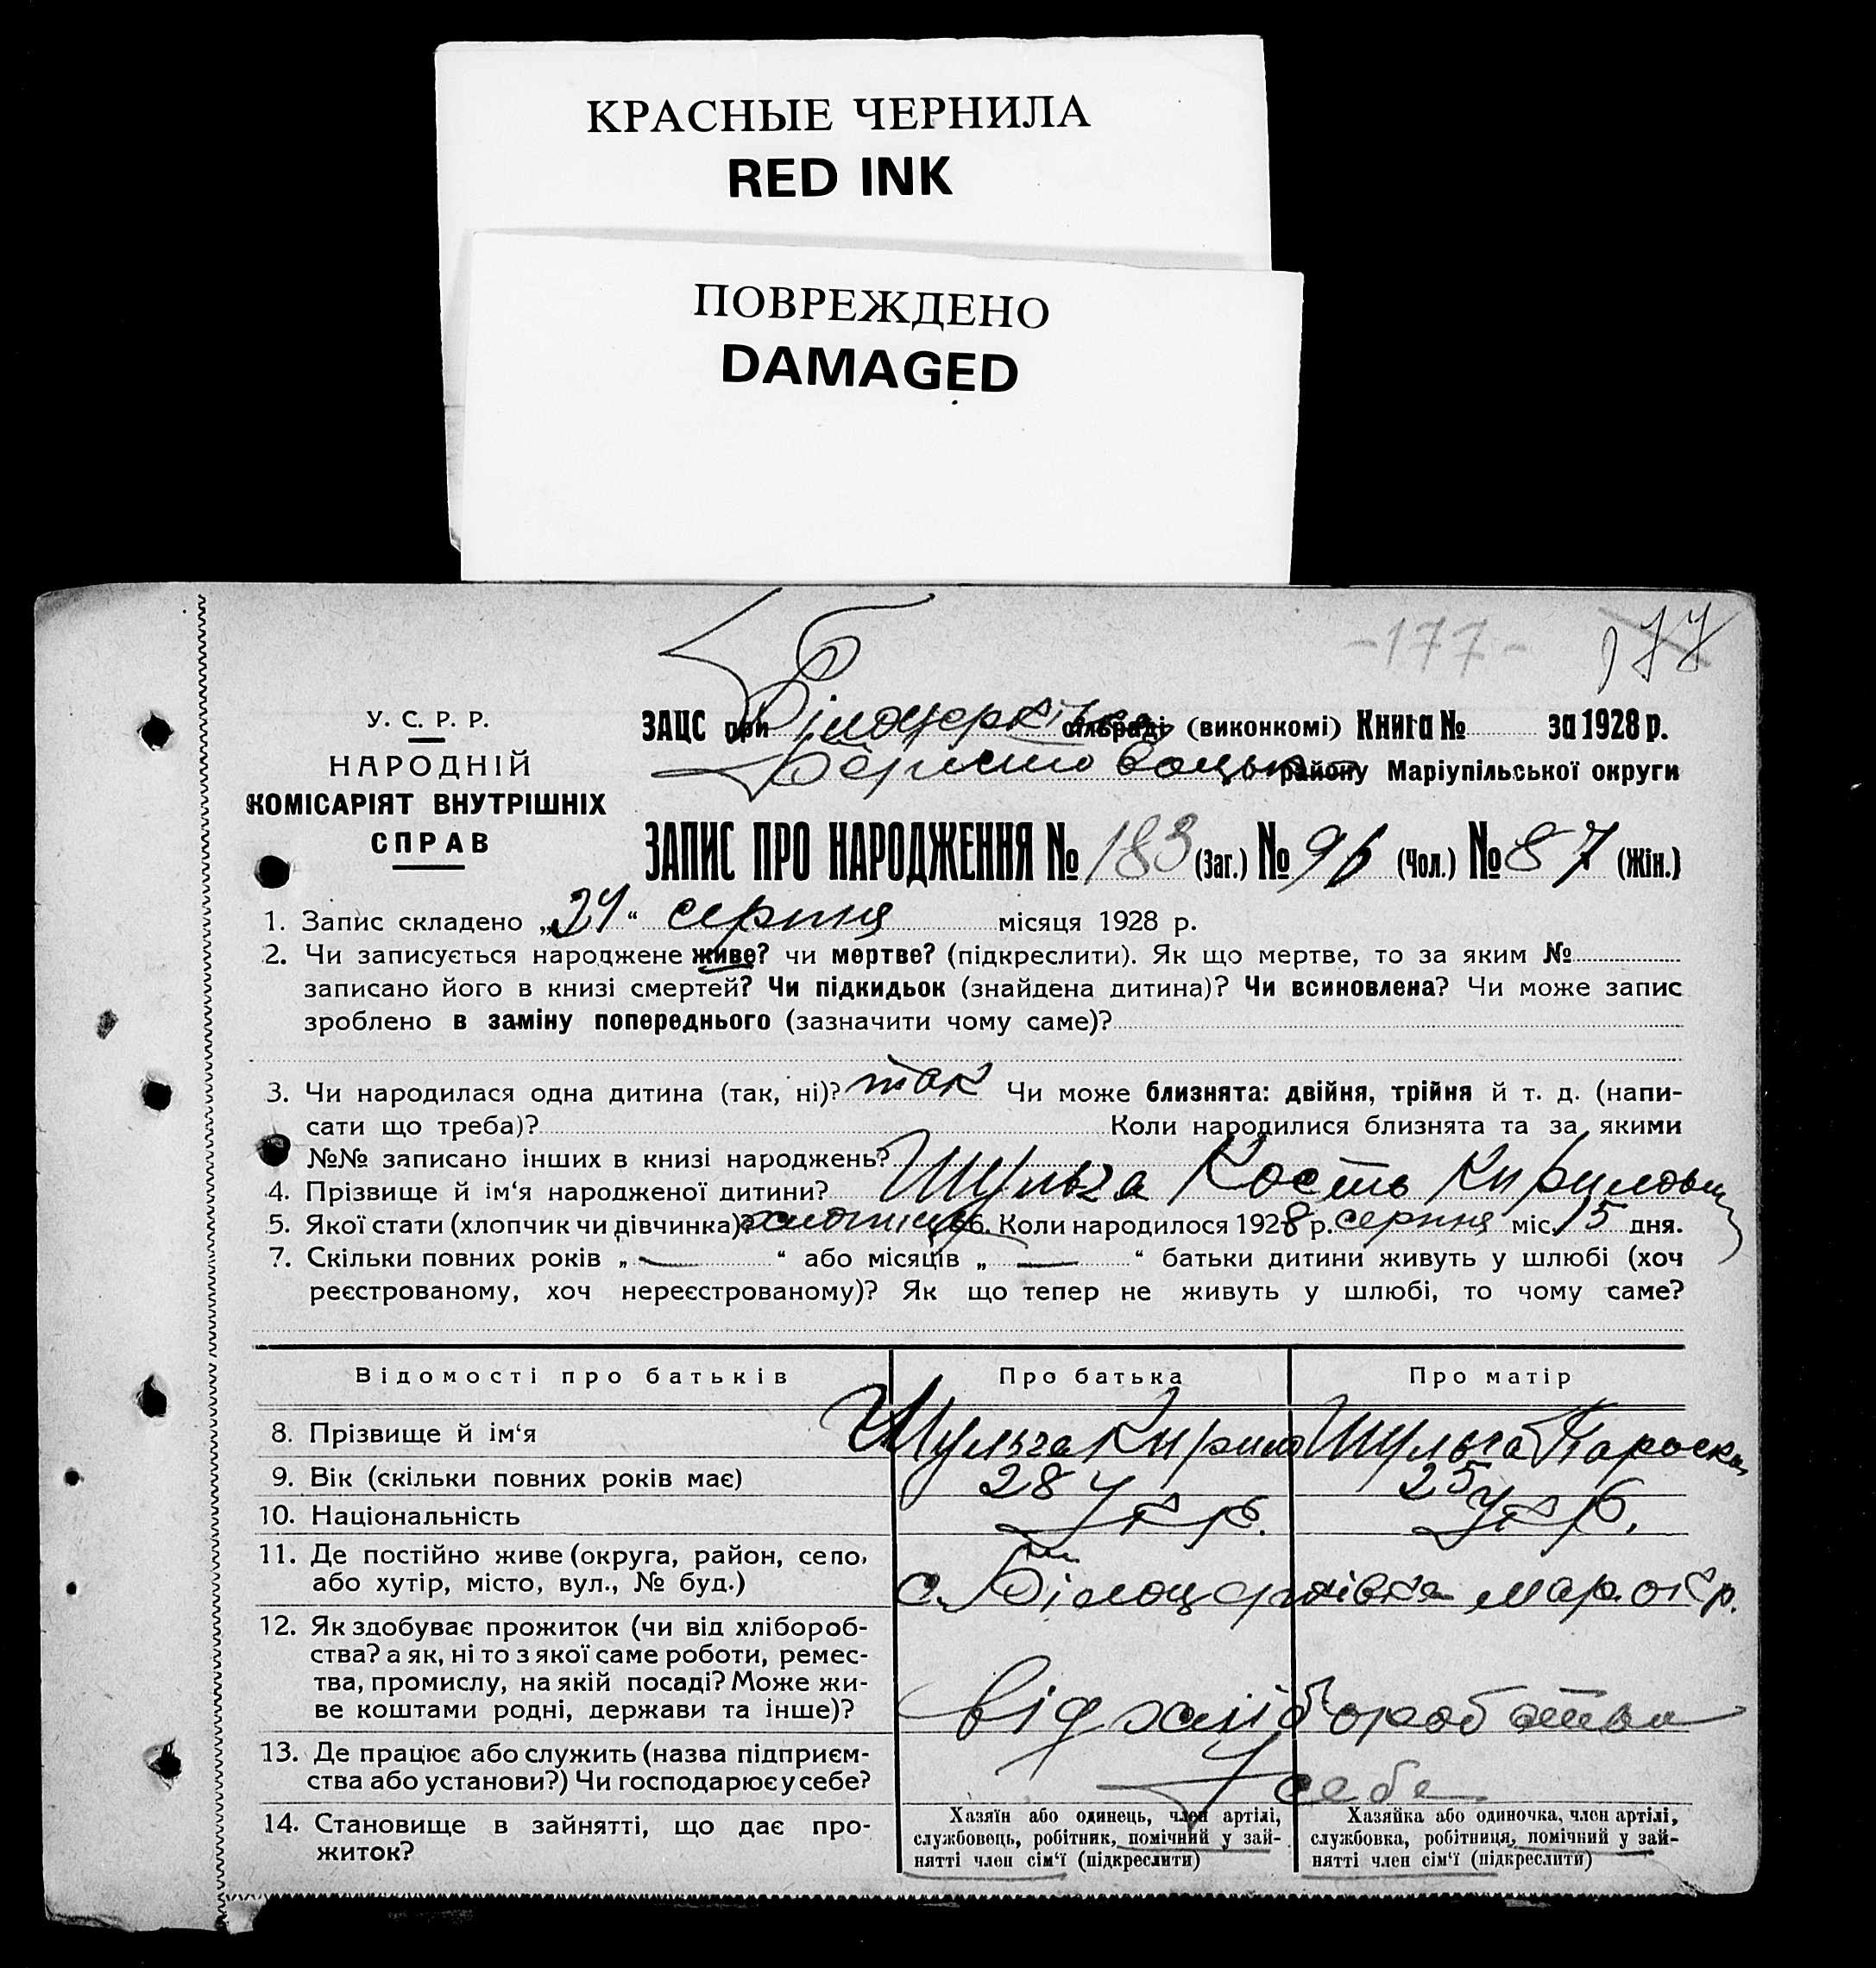 КРАСНЫЕ ЧЕРНИЛА
RED INK
ПОВРЕЖДЕНО
DAMAGED
-177-
177
У. С. Р. Р.
НАРОДНІЙ
КОМІСАРІЯТ ВНУТРІШНІХ
СПРАВ
ЗАЦС при Білоцерківка сільраді (виконкомі) Книга № за 1928 р.
району Маріупільської округи
ЗАПИС ПРО НАРОДЖЕННЯ № 183 (Заг.) № 96 (Чол.) № 87 (Жін.)
1. Запис складено „24“ серпня місяця 1928 р.
2. Чи записується народжене живе? чи мертве? (підкреслити). Як що мертве, то за яким №
записано його в книзі смертей? Чи підкидьок (знайдена дитина)? Чи всиновлена? Чи може запис
зроблено в заміну попереднього (зазначити чому саме)?
3. Чи народилася одна дитина (так, ні)? так Чи може близнята: двійня, трійня й т. д. (напи-
сати що треба)? Коли народилися близнята та за якими
№№ записано інших в книзі народжень?
4. Прізвище й ім‘я народженої дитини? Шульга Кость Кирилович
5. Якої стати (хлопчик чи дівчинка)? хлопчик 6. Коли народилося 1928 р. серпня міс. 15 дня.
7. Скільки повних років „ — “ або місяців „ — “ батьки дитини живуть у шлюбі (хоч
реєстрованому, хоч нереєстрованому)? Як що тепер не живуть у шлюбі, то чому саме?
Відомості про батьків Про батька Про матір
8. Прізвище й ім‘я Шульга Кирило Шульга Параска
9. Вік (скільки повних років має) 28 25
10. Національність Укр. Укр.
11. Де постійно живе (округа, район, село,
або хутір, місто, вул., № буд.) с. Білоцерківка мар. окр.
12. Як здобуває прожиток (чи від хлібороб-
ства? а як, ні то з якої саме роботи, ремес-
тва, промислу, на якій посаді? Може жи-
ве коштами родні, держави та інше)? від хліборобства
13. Де працює або служить (назва підприєм-
ства або установи?) Чи господарює у себе? У себе
14. Становище в зайнятті, що дає про-
житок?
Хазяїн або одинець, член артілі,
службовець, робітник, помічний у зай-
нятті член сім‘ї (підкреслити)
Хазяйка або одиночка, член артілі,
службовка, робітниця, помічний у зай-
нятті член сім‘ї (підкреслити)